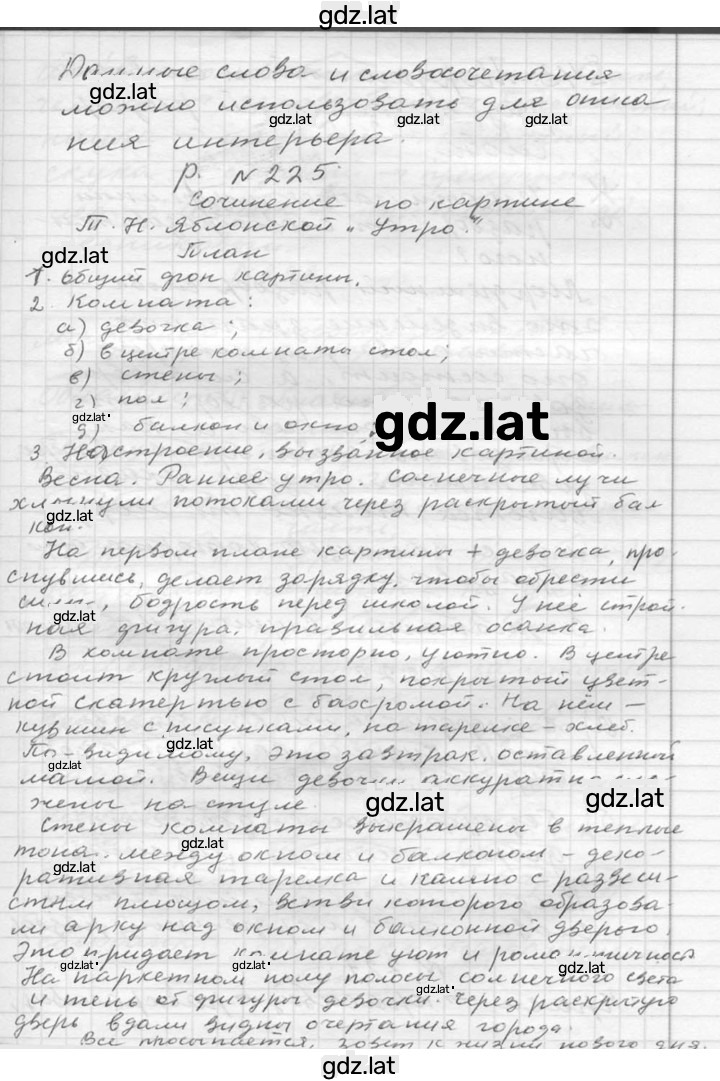 gdz.lat
Данные слова и словосочетания
gdz.lat
можно использовать для описа
gdz.lat gdz.lat gdz.lat
ния интерьера.
Р. №225.
Сочинение по картине
Т. Н. Яблонской „Утро."
gdz.lat
План
1. Общий фон картины.
2. Комната:
а) девочка;
б) в центре комнаты стол;
в) стены;
г) пол;
gdz.lat
gdz.lat
д) балкон и окно;
3. Настроение, вызванное картиной.
Весна. Раннее утро. Солнечные лучи
хлынули потоками через раскрытый бал
gdz.lat
кон.
На первом плане картины + девочка, про-
снувшись, делает зарядку, чтобы обрести
силы, бодрость перед школой. У неё строй-
gdz.lat
ная фигура, правильная осанка.
В комнате просторно, уютно. В центре
стоит круглый стол, покрытый цвет-
ной скатертью с бахромой. На нём –
кувшин с рисунками, на тарелке – хлеб.
gdz.lat
По-видимому, это завтрак, оставленный
gdz.lat
мамой. Вещи девочки аккуратно
жены на стуле.
gdz.lat gdz.lat
Стены комнаты выкрашены в теплые
gdz.lat
тона. Между окном и балконом – деко-
gdz.lat
ративная тарелка и кашпо с развеси-
стым плющом, ветви которого образова-
ли арку над окном и балконной дверью.
Это придает комнате уют и романтичность
gdz.lat gdz.lat gdz.lat
На паркетном полу полосы солнечного света
и тень от фигуры девочки. Через раскрытую
дверь вдали видны очертания города.
Все просыпается, зовет к жизни нового дня.
gdz.lat